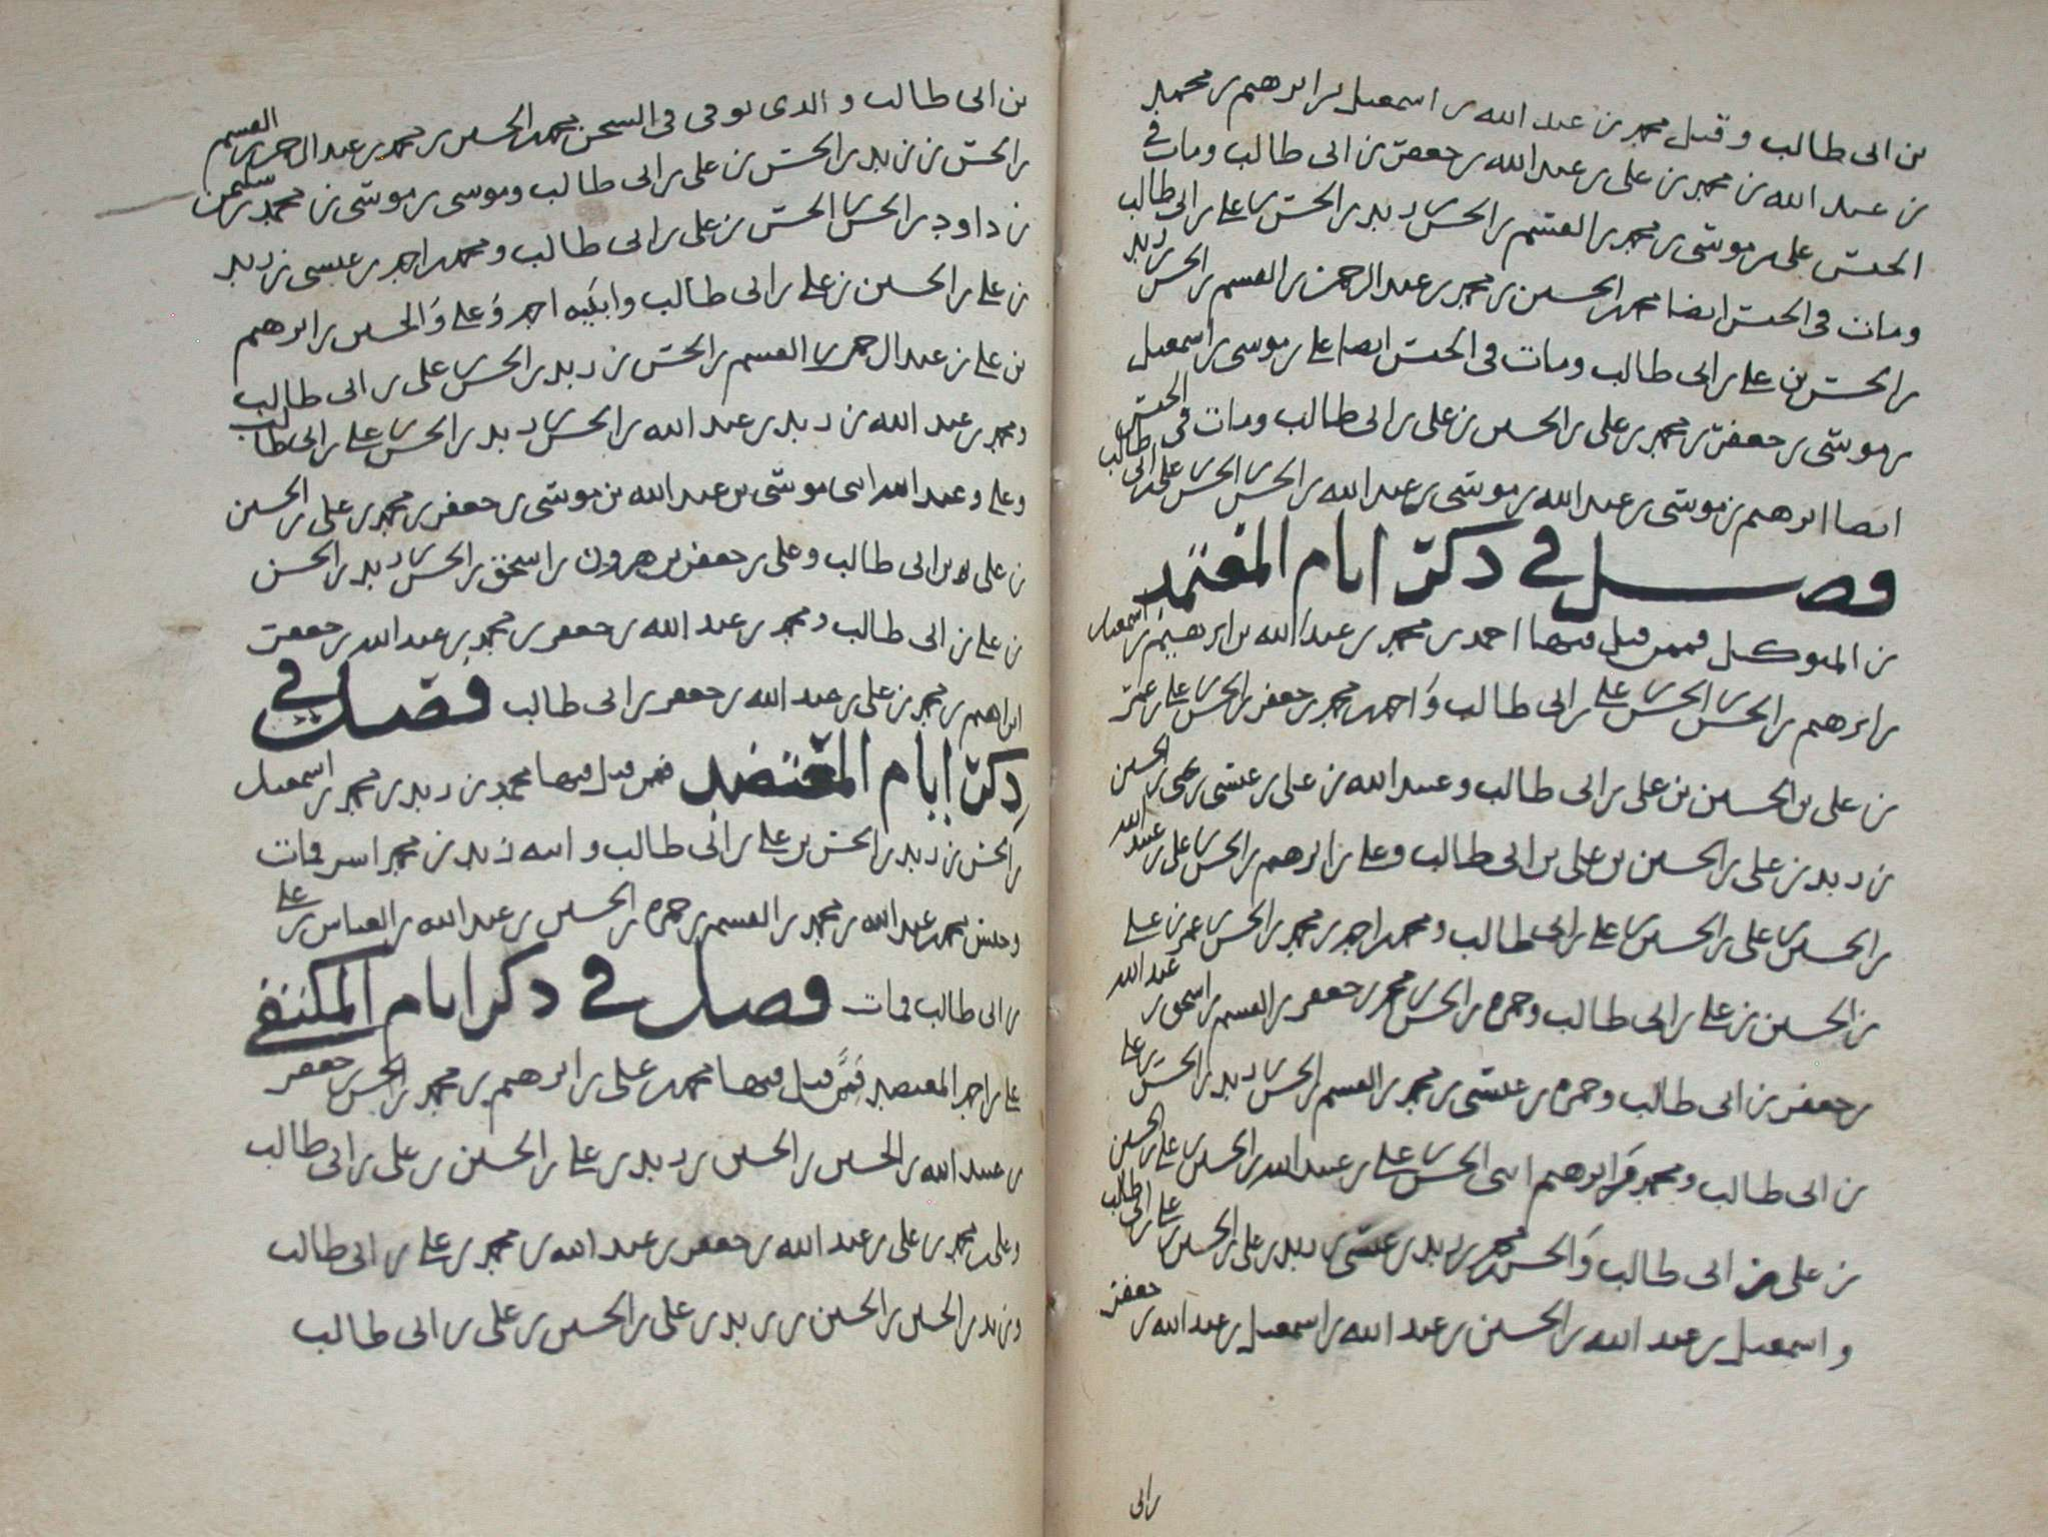 بن ابى طالب وقتل محمد بن عبد الله بن اسمعيل بن ابرهيم بن محمد
بن عبد الله بن محمد بن على بن عبد الله بن جعفر بن ابى طالب ومات فى
الحبس على بن موسى بن محمد بن القسم بن الحسن بن زيد بن الحسن بن على بن ابى طالب
ومات فى الحبس ايضا محمد بن الحسين بن محمد بن عبد الرحمن بن القسم بن الحسن بن زيد
بن الحسن بن على بن ابى طالب ومات فى الحبس ايضا على بن موسى بن اسمعيل
بن موسى بن جعفر بن محمد بن على بن الحسين بن على بن ابى طالب ومات فى الحبس
ايضا ابرهيم بن موسى بن عبد الله بن موسى بن عبد الله بن الحسن بن الحسن بن على بن ابى طالب
فصل فى ذكر ايام المعتمد
بن المتوكل فممن قتل فيها احمد بن محمد بن عبد الله بن ابرهيم بن اسمعيل
بن ابرهيم بن الحسن بن الحسن بن على بن ابى طالب واحمد بن محمد بن جعفر بن الحسن بن على بن عمر
بن على بن الحسين بن على بن ابى طالب وعبيد الله بن على بن عيسى بن يحيى بن الحسين
بن زيد بن على بن الحسين بن على بن ابى طالب وعلى بن ابرهيم بن الحسن بن على بن عبيد الله
بن الحسين بن على بن الحسين بن على بن ابى طالب ومحمد بن احمد بن محمد بن الحسن بن عمر بن على
بن الحسين بن على بن ابى طالب وحمزه بن الحسن بن محمد بن جعفر بن القسم بن اسحق بن عبد الله
بن جعفر بن ابى طالب وحمزه بن عيسى بن محمد بن القسم بن الحسن بن زيد بن الحسن بن على
بن ابى طالب ومحمد وابرهيم ابنى الحسن بن على بن عبيد الله بن الحسين بن على بن الحسين
بن على بن ابى طالب والحسن بن محمد بن زيد بن عيسى بن زيد بن على بن الحسين بن على بن ابى طالب
واسمعيل بن عبد الله بن الحسين بن عبد الله بن اسمعيل بن عبد الله بن جعفر
بن ابى
بن ابى طالب والذى توفى فى السجن محمد بن الحسين بن محمد بن عبد الرحمن بن القسم
بن الحسن بن زيد بن الحسن بن على بن ابى طالب وموسى بن موسى بن محمد بن سليمن
بن داود بن الحسن بن الحسن بن على بن ابى طالب ومحمد بن احمد بن عيسى بن زيد
بن على بن الحسين بن على بن ابى طالب وابنيه احمد وعلى والحسين بن ابرهيم
بن على بن عبد الرحمن بن القسم بن الحسن بن زيد بن الحسن بن على بن ابى طالب
ومحمد بن عبد الله بن زيد بن عبد الله بن الحسن بن زيد بن الحسن بن على بن ابى طالب
وعلى وعبد الله ابنى موسى بن عبد الله بن موسى بن جعفر بن محمد بن على بن الحسين
بن على بن ابى طالب وعلى بن جعفر بن هرون بن اسحق بن الحسن بن زيد بن الحسن
بن على بن ابى طالب ومحمد بن عبد الله بن جعفر بن محمد بن عبد الله بن جعفر
ابراهيم بن محمد بن على بن عبد الله بن جعفر بن ابى طالب فصل فى
ذكر ايام المعتضد فمن قتل فيها محمد بن زيد بن محمد بن اسمعيل
بن الحسن بن زيد بن الحسن بن على بن ابى طالب وابنه زيد بن محمد اسر فمات
وحبس محمد بن عبد الله بن محمد بن القسم بن حمزه بن الحسين بن عبد الله بن العباس بن على
بن ابى طالب فمات فصل فى ذكر ايام المكتفى
على بن احمد المعتضد فممن قتل فيها محمد بن على بن ابرهيم بن محمد بن الحسن بن جعفر
بن عبيد الله بن الحسين بن الحسين بن زيد بن على بن الحسين بن على بن ابى طالب
وعلى بن محمد بن على بن عبد الله بن جعفر بن عبد الله بن محمد بن على بن ابى طالب
وزيد بن الحسين بن الحسين بن زيد بن على بن الحسين بن على بن ابى طالب